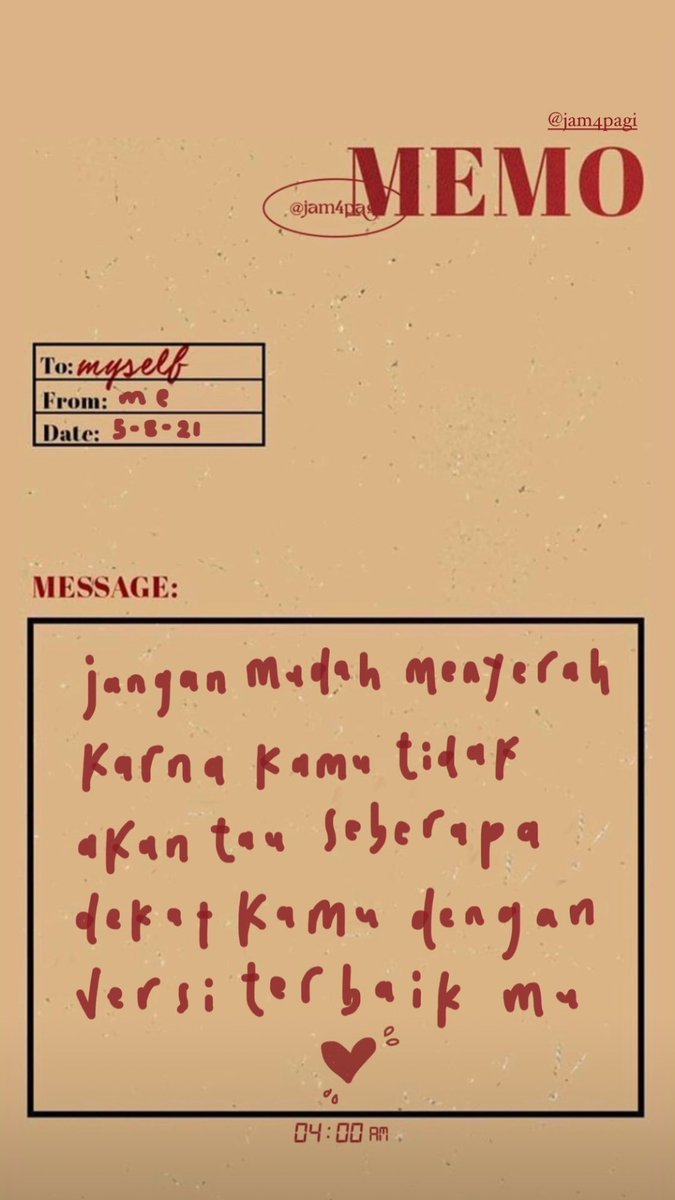 @jam4pagi
MEMO
@jam4pagi
To: myself
From: me
Date: 5-8-21
MESSAGE:
jangan mudah menyerah
karna kamu tidak
akan tau seberapa
dekat kamu dengan
versi terbaik mu
04:00 AM